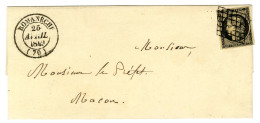 ROMANÈCHE
25
AVRIL
1849
(70)
Monsieur,
Monsieur le Préfet
Macon.